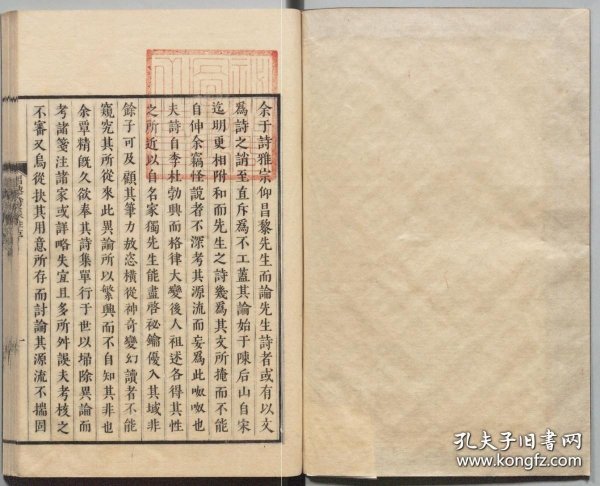 余于詩雅宗仰昌黎先生而論先生詩者或有以文
爲詩之誚至直斥爲不工蓋其論始于陳后山自宋
迄明更相附和而先生之詩幾爲其文所掩而不能
自伸余竊怪說者不深考其源流而妄爲此呶呶也
夫詩自李杜勃興而格律大變後人祖述各得其性
之所近以自名家獨先生能盡啓祕鑰優入其域非
餘子可及顧其筆力放恣橫從神奇變幻讀者不能
窺究其所從來此異論所以繁興而不自知其非也
余覃精旣久欲奉其詩集單行于世以埽除異論而
考諸箋注諸家或詳略失宜且多所舛誤夫考核之
不審又烏從抉其用意所存而討論其源流不揣固
一
孔夫子旧书网
www.kongfz.com